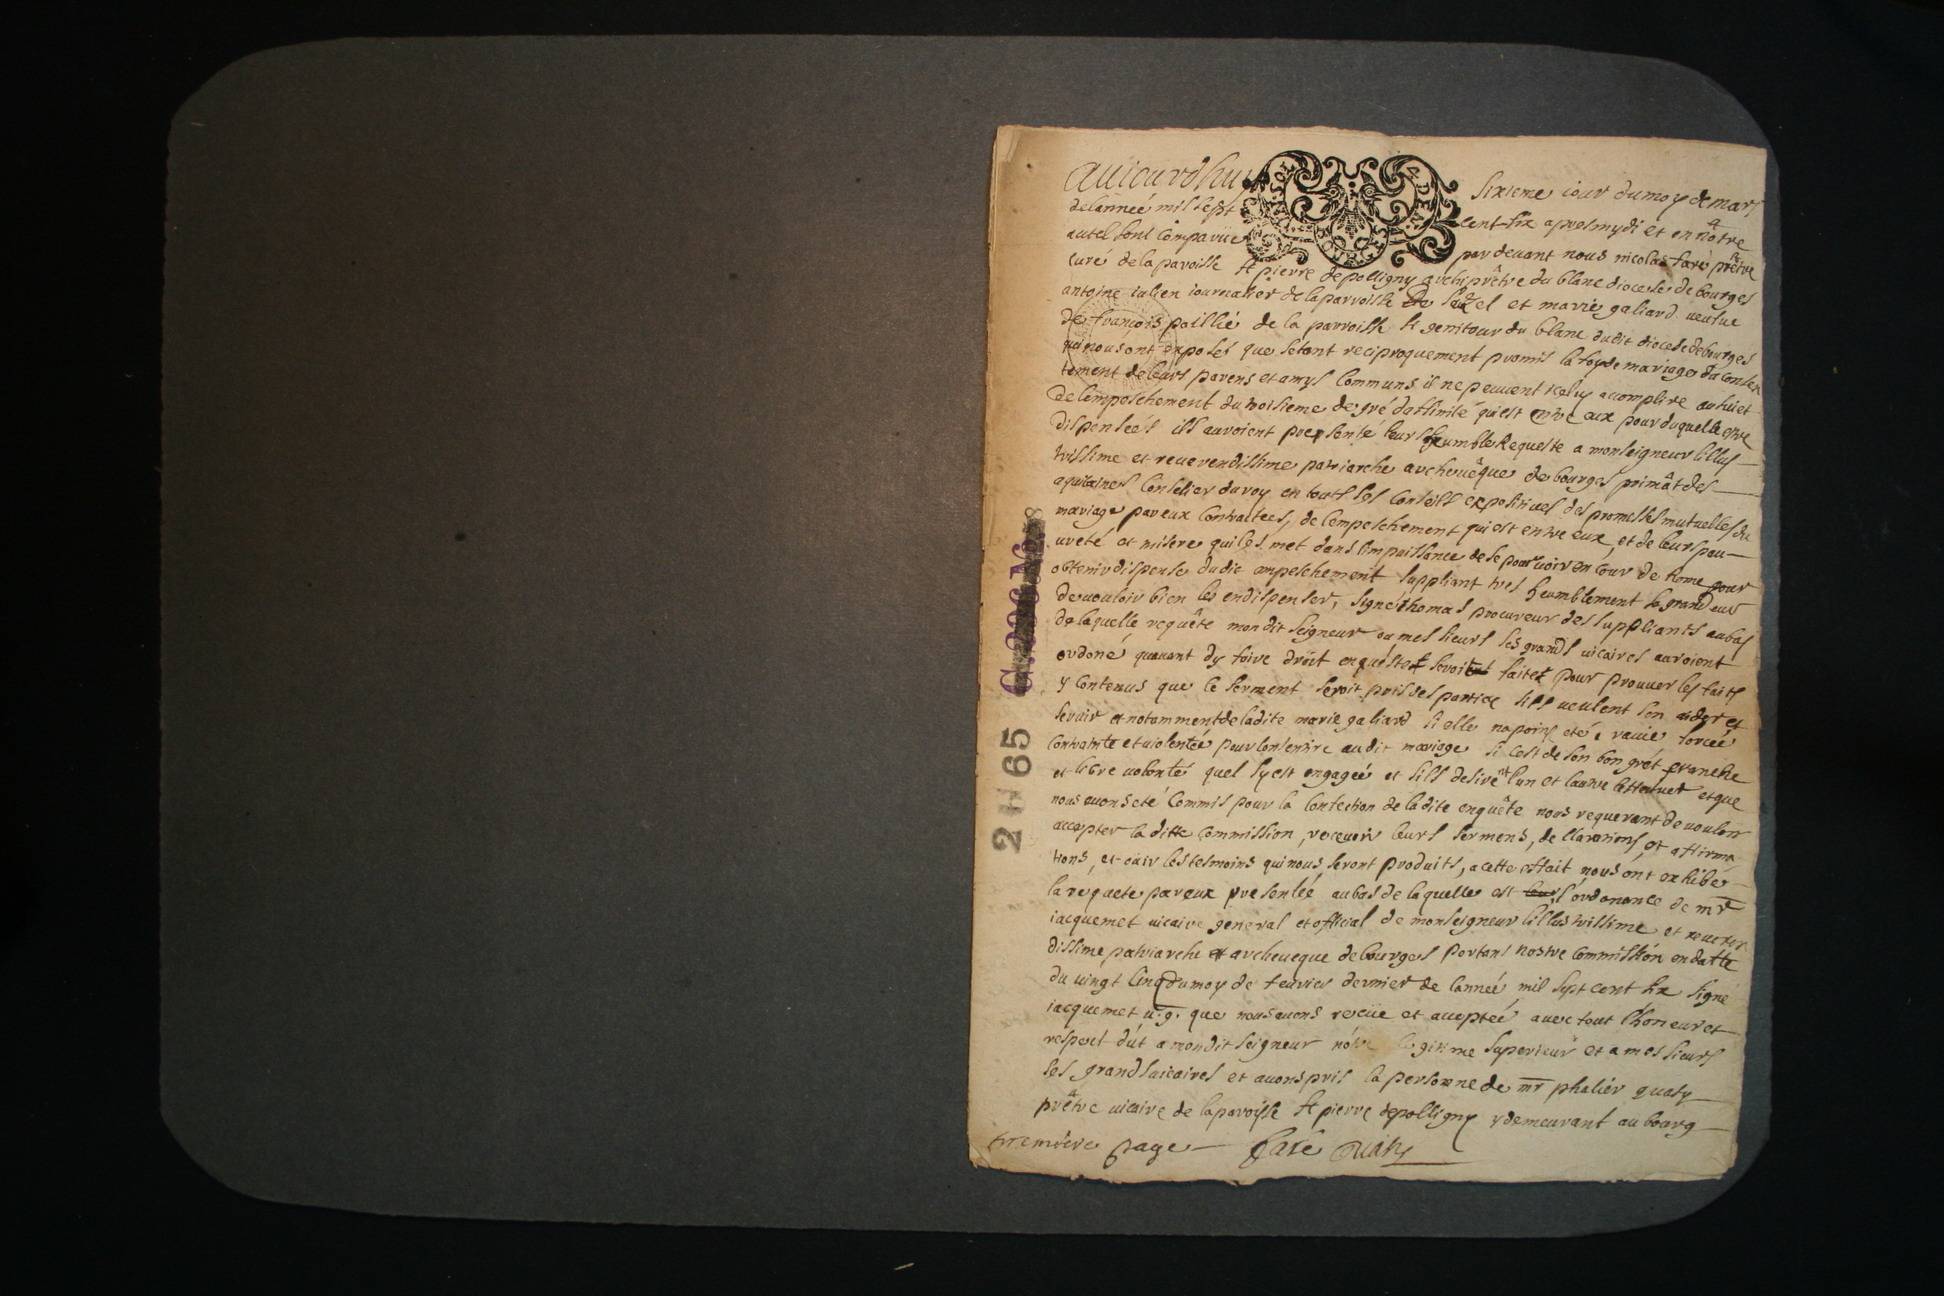 aujourdhuy sixieme iour du moy de mars
de lanneé mil sept cent six apres mydi et en nôtre
autel sont comparüe par devant nous nicolas faré prêtre
curé de la paroisse st pierre de polligny archiprêtre du blanc diocese de bourges
antoine iulien iournalier de la parroisse de et marie galiard veufue
de francois paillié de la parroisse st genitour du blanc dudit diocese de bourges
qui nous ont exposés que setant reciproquement promis la foy de mariage du consen
tement de leurs parens et amys communs il ne peuvent iceluy accomplire au suiet
de lempeschement du troisieme degré daffinité qui est entre eux pour duquelle estre
dispenseés ils auroient presenté leurs humble Requeste a monseigneur lillus
trissime et reverendissime patriarche archeuêque de bourges primât des
aquitaines Conselier du roy en touts ses Conseils expositives des promesses mutuelles du
mariage par eux Contractées, de lempeschement qui est entre eux, et de leurs pau
uveté et misere qui les met dans limpuissance de se pouruoir en cour de Rome pour
obtenir dispense dudit empeschement suppliant tres heumblement sa grandeur
de vouloir bien les en dispenser, signé thomas procureur des suppliants au bas
de laquelle requête mondit seigneur ou messieurs ses grands vicaires auroient
ordoné quauant dy faire droit enquéste seroit faitte pour prouuer les faits
y contenus que le serment seroit pris des parties sils ueulent sen aider et
seruir et notamment de ladite marie galiard si elle na point eté, rauie forceé
contrainte et violentée pour consentire audit mariage si cest de son bon gré franche
et libre volonté quel sy est engageé et sils desirent lun et lautre leffectuer et que
nous avons eté Commis pour la Confection de ladite enquête nous requerant de vouloir
accepter la ditte Commission, recevoir leurs sermens, declarations, et affirma
tions, et ouir les tesmoins qui nous seront produits, a cette effait nous ont exhibe
la requete par eux presentée au bas de laquelle est l'ordonance de mr
iacquemet uicaire general et official de monseigneur lillustrissime et reueren
dissime patriarche archeueque de bourges portant nostre Commission en datte
du vingt Cinq du moy de feurier dernier de lanneé mil sept cent six signé
iacquemet u. g. que nous auons receüe et accepteé auec tout l'honeur et
réspect dût a mondit seigneur nôtre legitime superieur et a messieurs
ses grands uicaires et auons pris la persone de mr phalier
prêtre uicaire de la paroisse st pierre de polligny y demeurant au bourg
premiere page faré
2 H 65